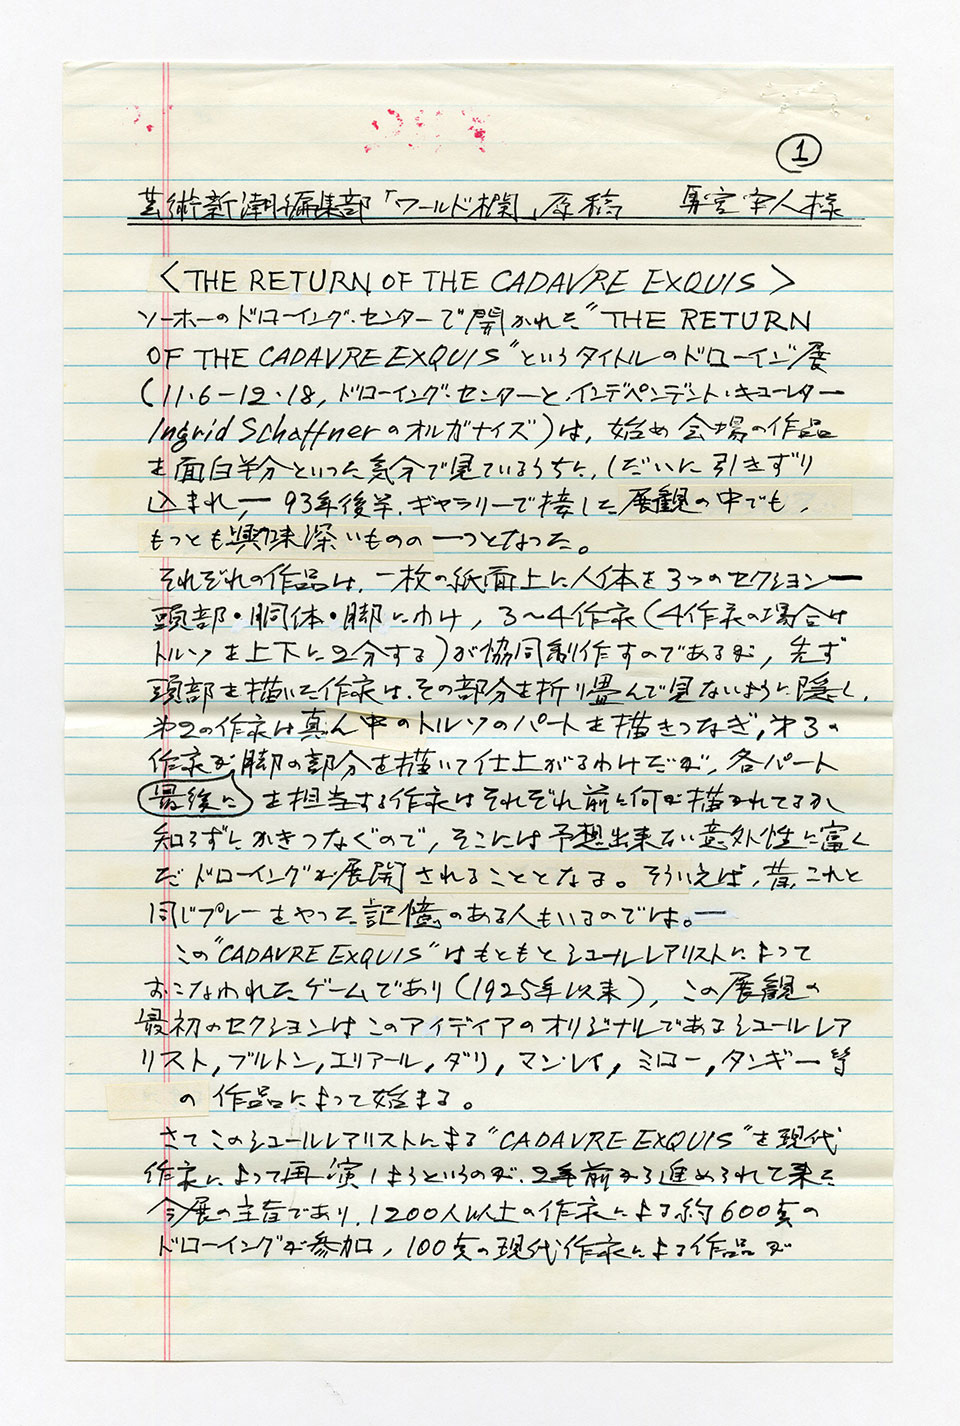 ①
芸術新潮編集部「ワールド欄」原稿 様
〈THE RETURN OF THE CADAVRE EXQUIS〉
ソーホーのドローイング・センターで開かれた“THE RETURN
OF THE CADAVRE EXQUIS”というタイトルのドローイング展
(11・6−12・18, ドローイング・センターと、インデペンデント・キューレター
Ingrid Schaffnerのオルガナイズ)は、始め会場の作品
を面白半分といった気分で見ているうちに、しだいに引きずり
込まれ、― 93年後半、ギャラリーで接した展観の中でも、
もっとも興味深いものの一つとなった。
それぞれの作品は、一枚の紙面上に人体を3つのセクション―
頭部・胴体・脚にわけ、3〜4作家(4作家の場合は
トルソを上下に2分する)が協同制作すのであるが、先ず
頭部を描いた作家は、その部分を折り畳んで見ないように隠し、
第2の作家は真ん中のトルソのパートを描きつなぎ、第3の
作家が脚の部分を描いて仕上がるわけだが、各パート
最後に を担当する作家はそれぞれ前に何が描かれてるか
知らずにかきつなぐので、そこには予想出来ない意外性に富ん
だドローイングが展開されることとなる。そういえば、昔、これと
同じプレーをやった記憶のある人もいるのでは。―
この“CADAVRE EXQUIS”はもともとシュールレアリストによって
おこなわれたゲームであり(1925年以来)、この展観の
最初のセクションはこのアイディアのオリジナルであるシュールレア
リスト、ブルトン、エリアール、ダリ、マン・レイ、ミロー、タンギー等
の作品によって始まる。
さてこのシュールレアリストによる“CADAVRE EXQUIS”を現代
作家によって再演しようというのが、2年前から進められて来た
今展の主旨であり、1200人以上の作家による約600点の
ドローイングが参加、100点の現代作家による作品が